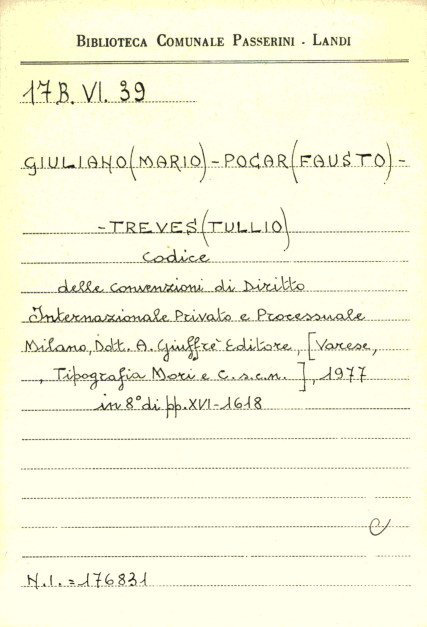 BIBLIOTECA COMUNALE PASSERINI - LANDI
17B. VI. 39
GIULIANO (MARIO) - POCAR (FAUSTO) -
- TREVES (TULLIO)
Codice
delle convenzioni di Diritto
Internazionale Privato e Processuale
Milano, Ddt. A. Giuffrè Editore, [Varese,
, Tipografia Mori e C. s.c.n. ], 1977
in 8° di pp. XVI-1618
C
N.I. = 176831